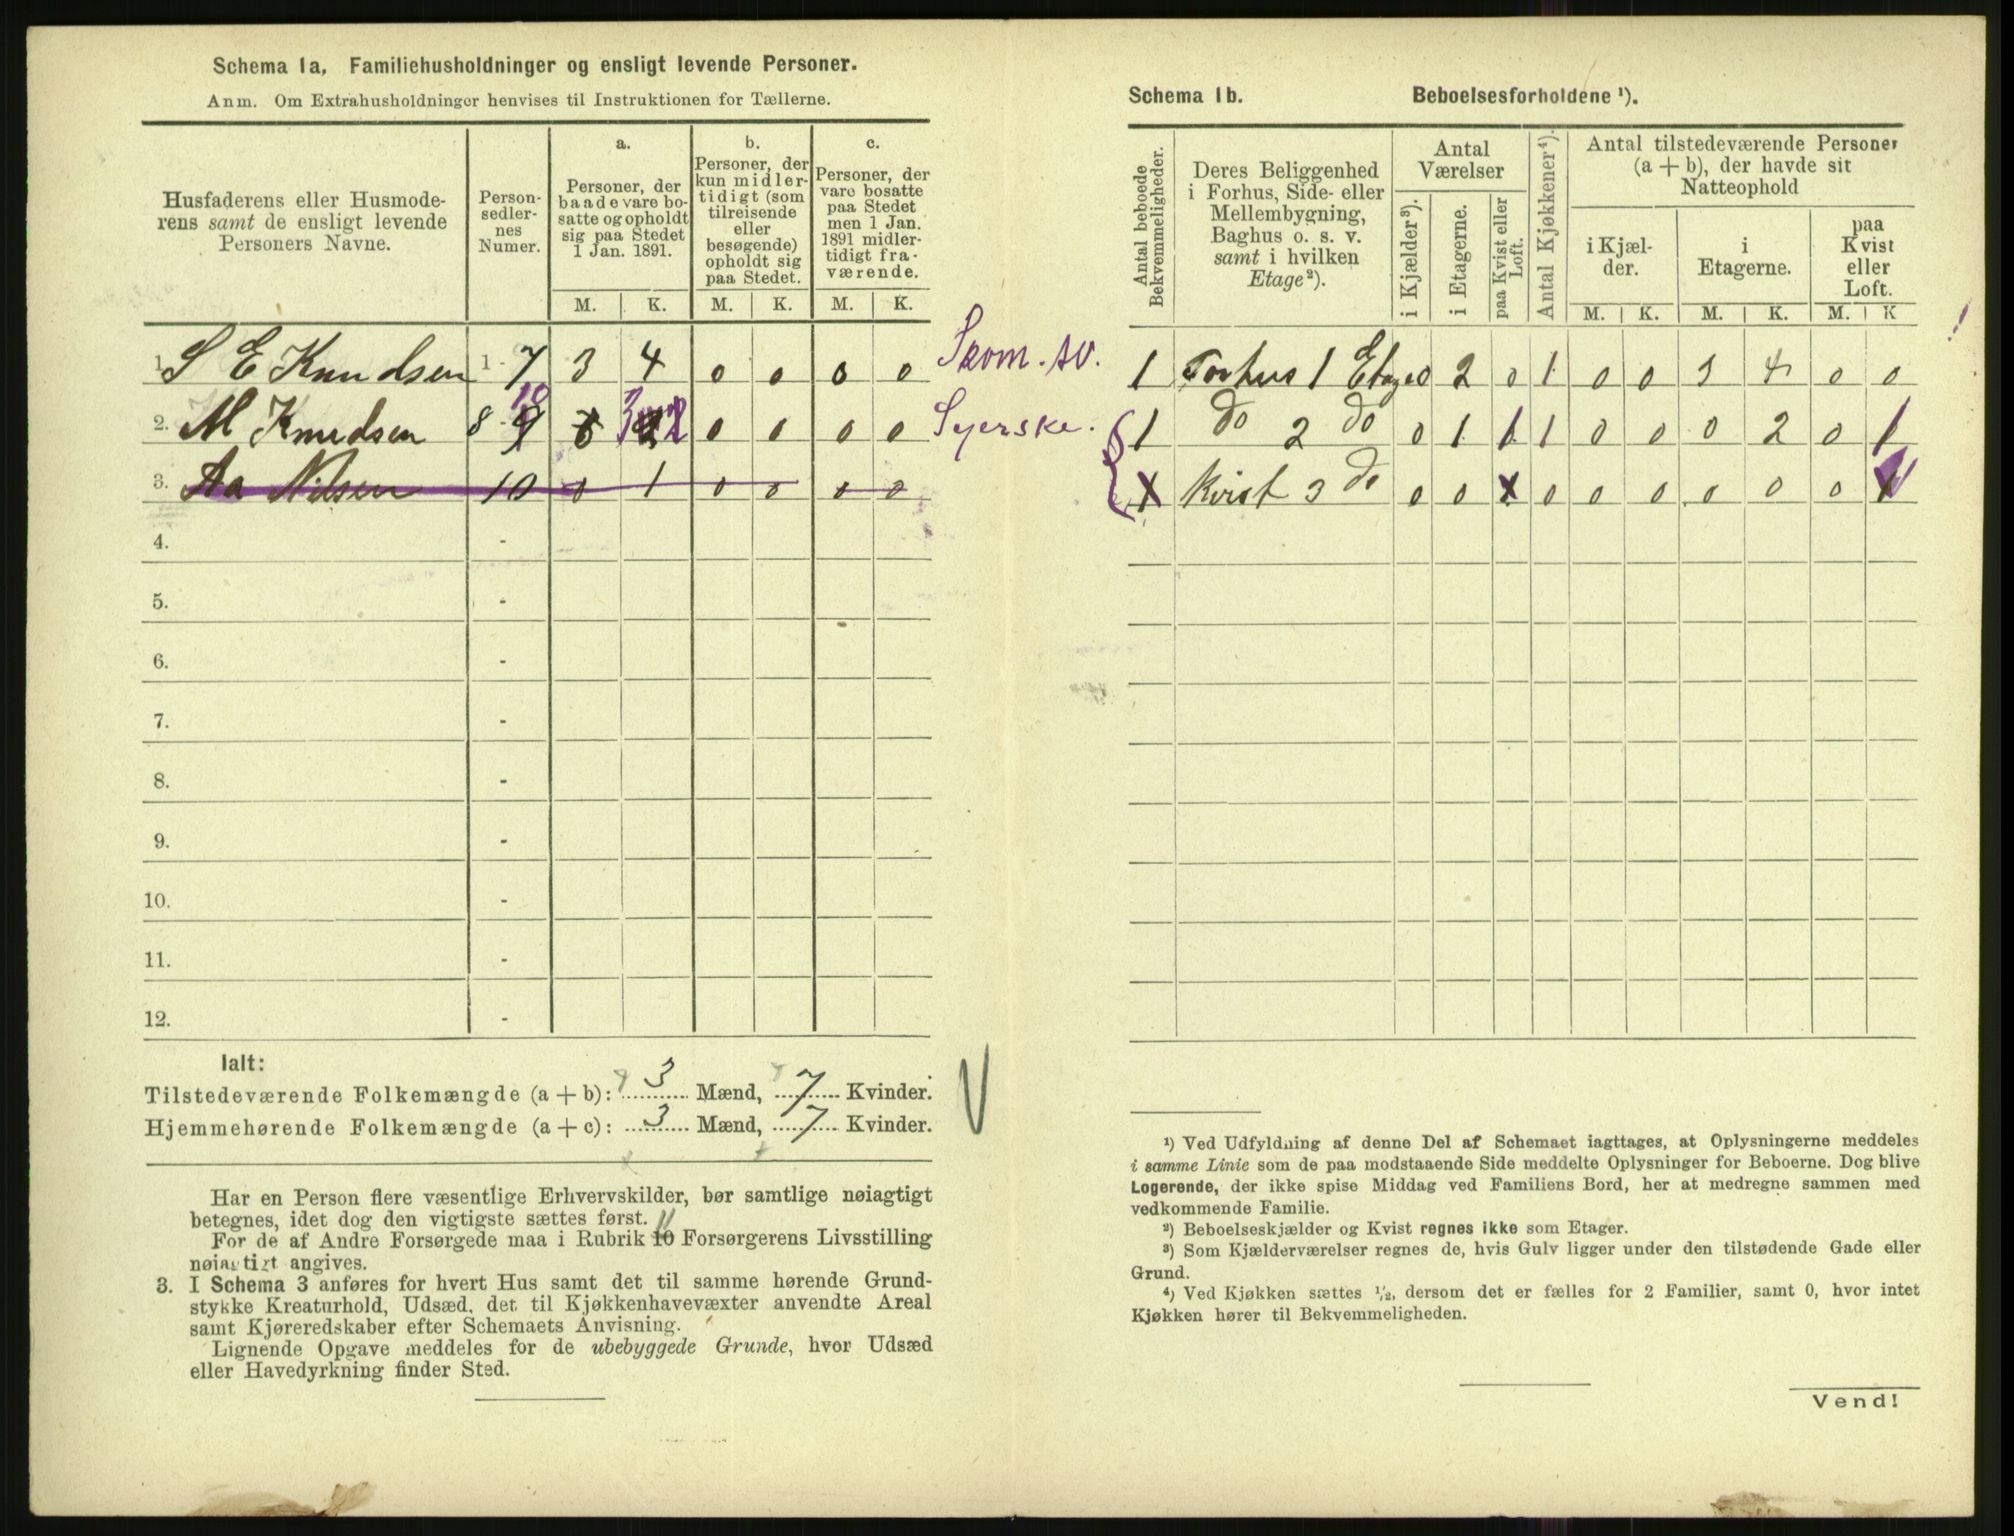 Schema 1a. Familiehusholdninger og ensligt levende Personer.
Anm. Om Extrahusholdninger henvises til Instruktionen for Tællerne.
Husfaderens eller Husmode-
rens samt de ensligt levende
Personers Navne.
Person-
sedler-
nes
Numer.
a.
Personer, der
baade vare bo-
satte og opholdt
sig paa Stedet
1 Jan. 1891.
b.
Personer, der
kun midler-
tidigt (som
tilreisende
eller
besøgende)
opholdt sig
paa Stedet.
c.
Personer, der
vare bosatte
paa Stedet
men 1 Jan.
1891 midler-
tidigt fra-
værende.
M. K. M. K. M. K.
1. S E Knudsen 1 - 7 3 4 0 0 0 0 Skom. SV.
2. M Knudsen 8 - 10 3 0 0 0 0 Syerske.
3. Aa Nilsen 10 0 1 0 0 0 0
4. -
5. -
6. -
7. -
8. -
9. -
10. -
11. -
12. -
Ialt:
Tilstedeværende Folkemængde (a + b): 3 Mænd, 7 Kvinder.
Hjemmehørende Folkemængde (a + c): 3 Mænd, 7 Kvinder.
Har en Person flere væsentlige Erhvervskilder, bør samtlige nøiagtigt
betegnes, idet dog den vigtigste sættes først.
11
For de af Andre Forsørgede maa i Rubrik 10 Forsørgerens Livsstilling
nøiagtigt angives.
3. I Schema 3 anføres for hvert Hus samt det til samme hørende Grund-
stykke Kreaturhold, Udsæd, det til Kjøkkenhavevæxter anvendte Areal
samt Kjøreredskaber efter Schemaets Anvisning.
Lignende Opgave meddeles for de ubebyggede Grunde, hvor Udsæd
eller Havedyrkning finder Sted.
Schema 1b. Beboelsesforholdene ¹).
Antal beboede
Bekvemmeligheder.
Deres Beliggenhed
i Forhus, Side- eller
Mellembygning,
Baghus o. s. v.
samt i hvilken
Etage²).
Antal
Værelser
i Kjælder³).
i Etagerne.
paa Kvist eller
Loft.
Antal Kjøkkener⁴).
Antal tilstedeværende Personer
(a + b), der havde sit
Natteophold
i Kjæl-
der.
i
Etagerne.
paa
Kvist
eller
Loft.
M. K. M. K. M. K
1 Forhus 1 Etage 0 2 0 1 0 0 3 4 0 0
1 do 2 do 0 1 1 1 0 0 0 2 0 1
X Kvist 3 do 0 0 x 0 0 0 0 0 0
¹) Ved Udfyldning af denne Del af Schemaet iagttages, at Oplysningerne meddeles
i samme Linie som de paa modstaaende Side meddelte Oplysninger for Beboerne. Dog blive
Logerende, der ikke spise Middag ved Familiens Bord, her at medregne sammen med
vedkommende Familie.
²) Beboelseskjælder og Kvist regnes ikke som Etager.
³) Som Kjælderværelser regnes de, hvis Gulv ligger under den tilstødende Gade eller
Grund.
⁴) Ved Kjøkken sættes ¹/₂, dersom det er fælles for 2 Familier, samt 0, hvor intet
Kjøkken hører til Bekvemmeligheden.
Vend!